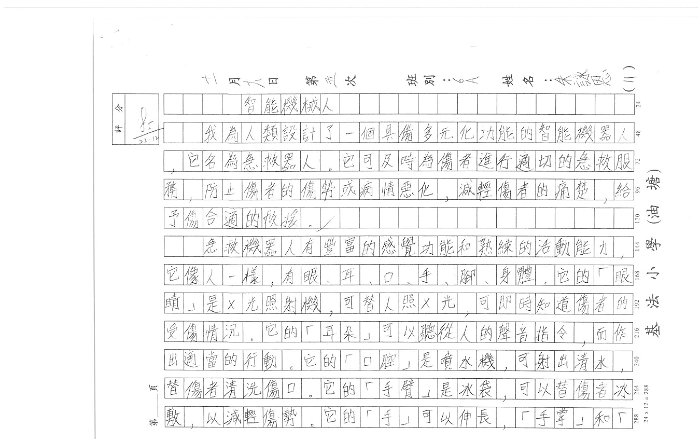 二月八日 第三次 班別：6A 姓名：(11)
總評
智能機械人
我為人類設計了一個具備多元化功能的智能機器人
，它名為急救器人。它可及時為傷者進行適切的急救服
務，防止傷者的傷勢或病情惡化，減輕傷者的痛楚，給
予傷合適的救援。
急救機器人有豐富的感覺功能和熟練的活動能力，
它像人一樣，有眼、耳、口、手、腳、身體。它的「眼
睛」是X光照射機，可替人照X光，可即時知道傷者的
受傷情況。它的「耳朵」可以聽從人的聲音指令，而作
出適當的行動。它的「口腔」是噴水機，可射出清水，
替傷者清洗傷口。它的「手臂」是冰袋，可以替傷者冰
敷，以減輕傷勢。它的「手」可以伸長，「手掌」和「
基法小學(油塘)
第 頁
24
48
72
96
120
144
168
192
216
240
264
288
24 x 12 = 288